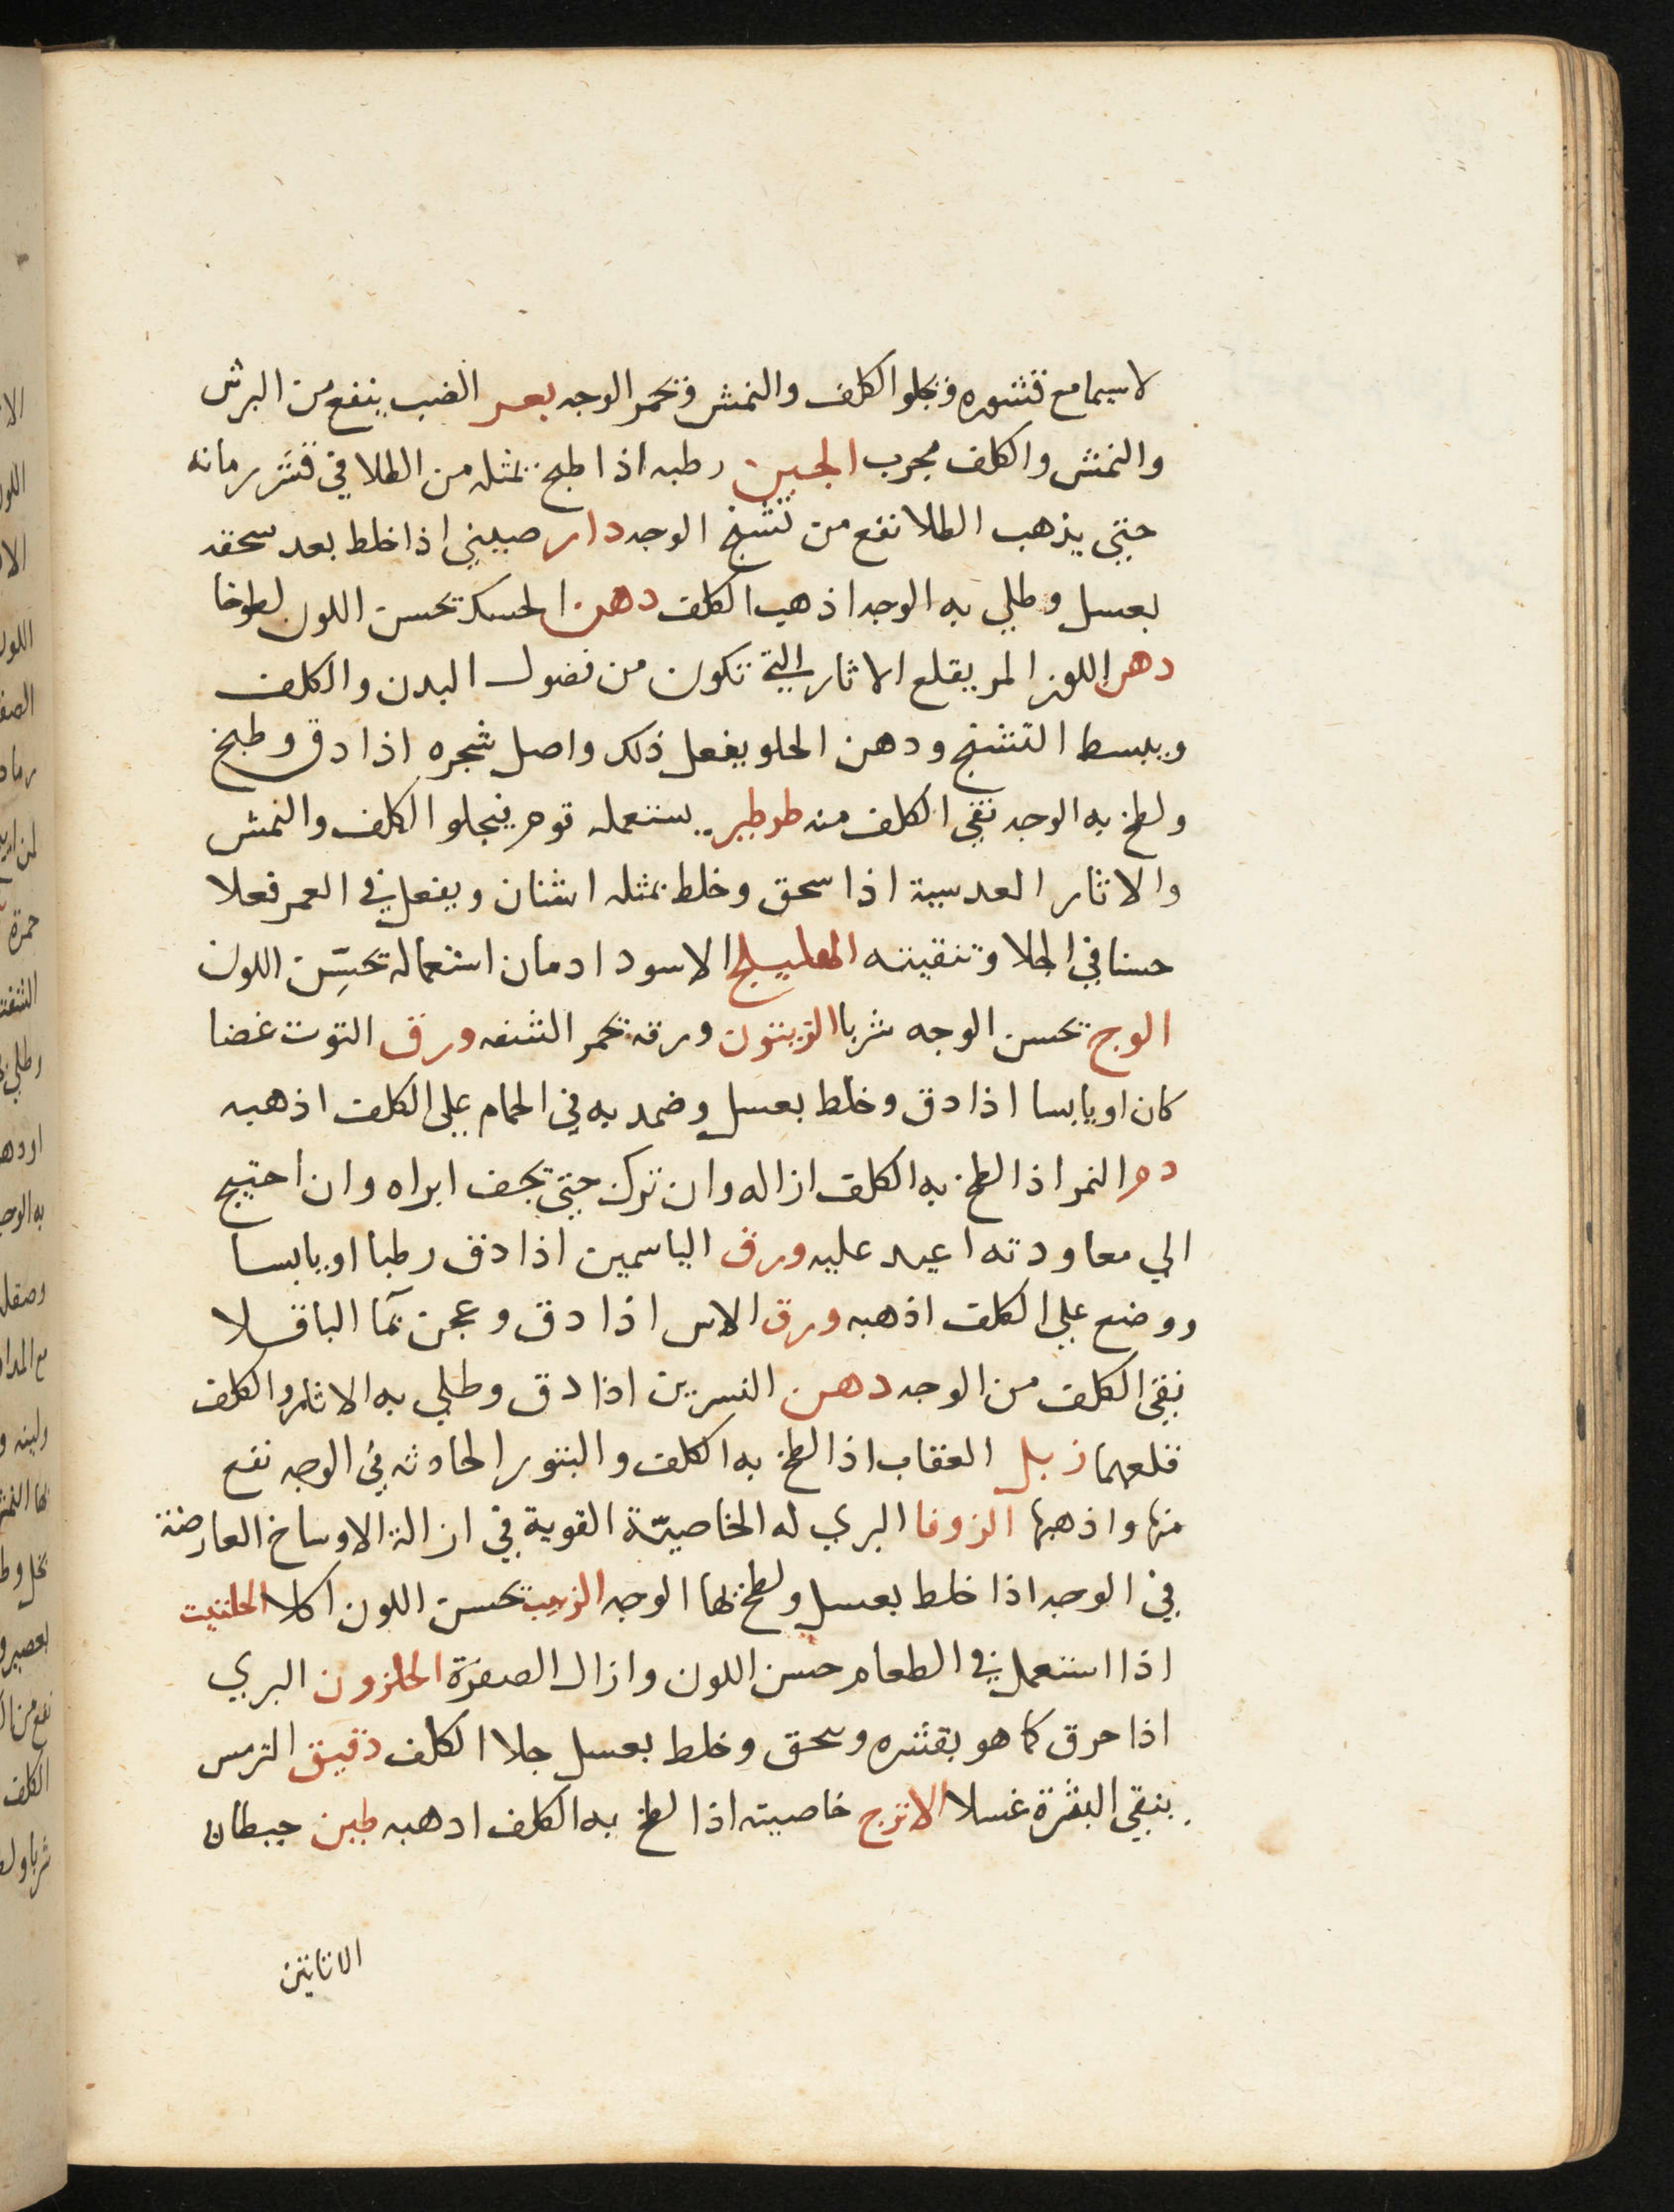 لاسيما مع قشوره وتجلوا الكلف والنمش وتحمر الوجه بعر الضب ينفع من البرش
والنمش والكلف مجرب الجبن رطبه اذا طبخ بمثله من الطلا في قشر رمانه
حتي يذهب الطلا نفع من تشنج الوجه دار صيني اذا خلط بعد سحقه
بعسل وطلي به الوجه اذهب الكلف دهن الحسك يحسن اللون لطوخا
دهن اللوز المر يقلع الاثار التي تكون من فضول البدن والكلف
ويبسط التشنج ودهن الحلو يفعل ذلك واصل شجره اذا دق وطبخ
ولطخ به الوجه نقي الكلف منه يستعمله قوم فيجلو الكلف والنمش
والاثار العدسية اذا سحق وخلط بمثله اشنان ويفعل في العمر فعلا
حسنا في الجلا وتنقيته الهليلج الاسود ادمان استعماله يحسّن اللون
الوج يحسن الوجه شربا الزيتون ورقه يحمر الشفه ورق التوت غضا
كان او يابسا اذا دق وخلط بعسل وضمد به في الحمام علي الكلف اذهبه
دم النمر اذا لطخ به الكلف ازاله وان ترك حتي يجف ابراه وان احتيج
الي معاودته اعيد عليه ورق الياسمين اذا دق رطبا او يابسا
ووضع علي الكلف اذهبه ورق الاس اذا دق وعجن بمآ الباقلا
نقي الكلف من الوجه دهن النسرين اذا دق وطلي به الاثار والكلف
قلعهما زبل العقاب اذا لطخ به الكلف والبثور الحادثه في الوجه نفع
منها واذهبها الزوفا البري له الخاصيّة القوية في ازالة الاوساخ العارضة
في الوجه اذا خلط بعسل ولطخ بها الوجه الزبيب يحسن اللون اكلا الحلتيت
اذا استعمل في الطعام حسن اللون وازال الصفرة الحلزون البري
اذا حرق كما هو بقشره وسحق وخلط بعسل جلا الكلف دقيق الترمس
ينقي البشرة غسلا الاترج خاصيته اذا لطخ به الكلف ادهبه طين